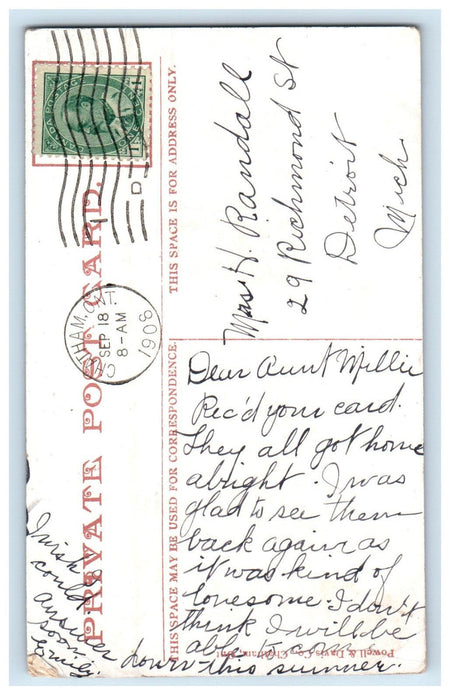 PRIVATE POST CARD.
THIS SPACE IS FOR ADDRESS ONLY.
THIS SPACE MAY BE USED FOR CORRESPONDENCE.
CANADA POSTAGE
CHATHAM, ONT.
SEP 18
8-AM
1906
Mrs H. Randall
29 Richmond St
Detroit
Mich
Dear Aunt Millie
Rec'd your card.
They all got home
alright. I was
glad to see them
back again as
it was kind of
lonesome. I don't
think I will be
able to come
down this summer.
I wish
could
answer
soon
Emily.
Powell & Davis Co., Chatham, Ont